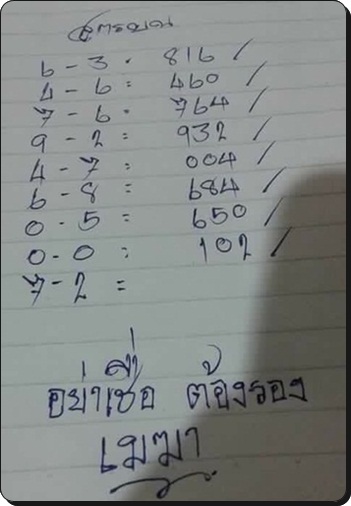 สูตรบน
6 - 3 . 816 /
4 - 6 : 460 /
7 - 6 : 764 /
9 - 2 = 932 /
4 - 7 = 004 /
6 - 8 = 684 /
0 - 5 = 650 /
0 - 0 : 102 /
7 - 2 =
อย่าเชื่อ ต้องรอง
เมฆา